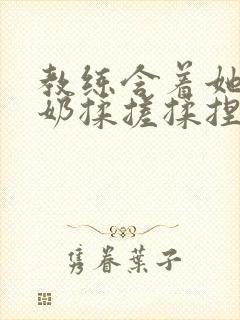 教练含着她
奶揉搓揉捏
隽眷叶子